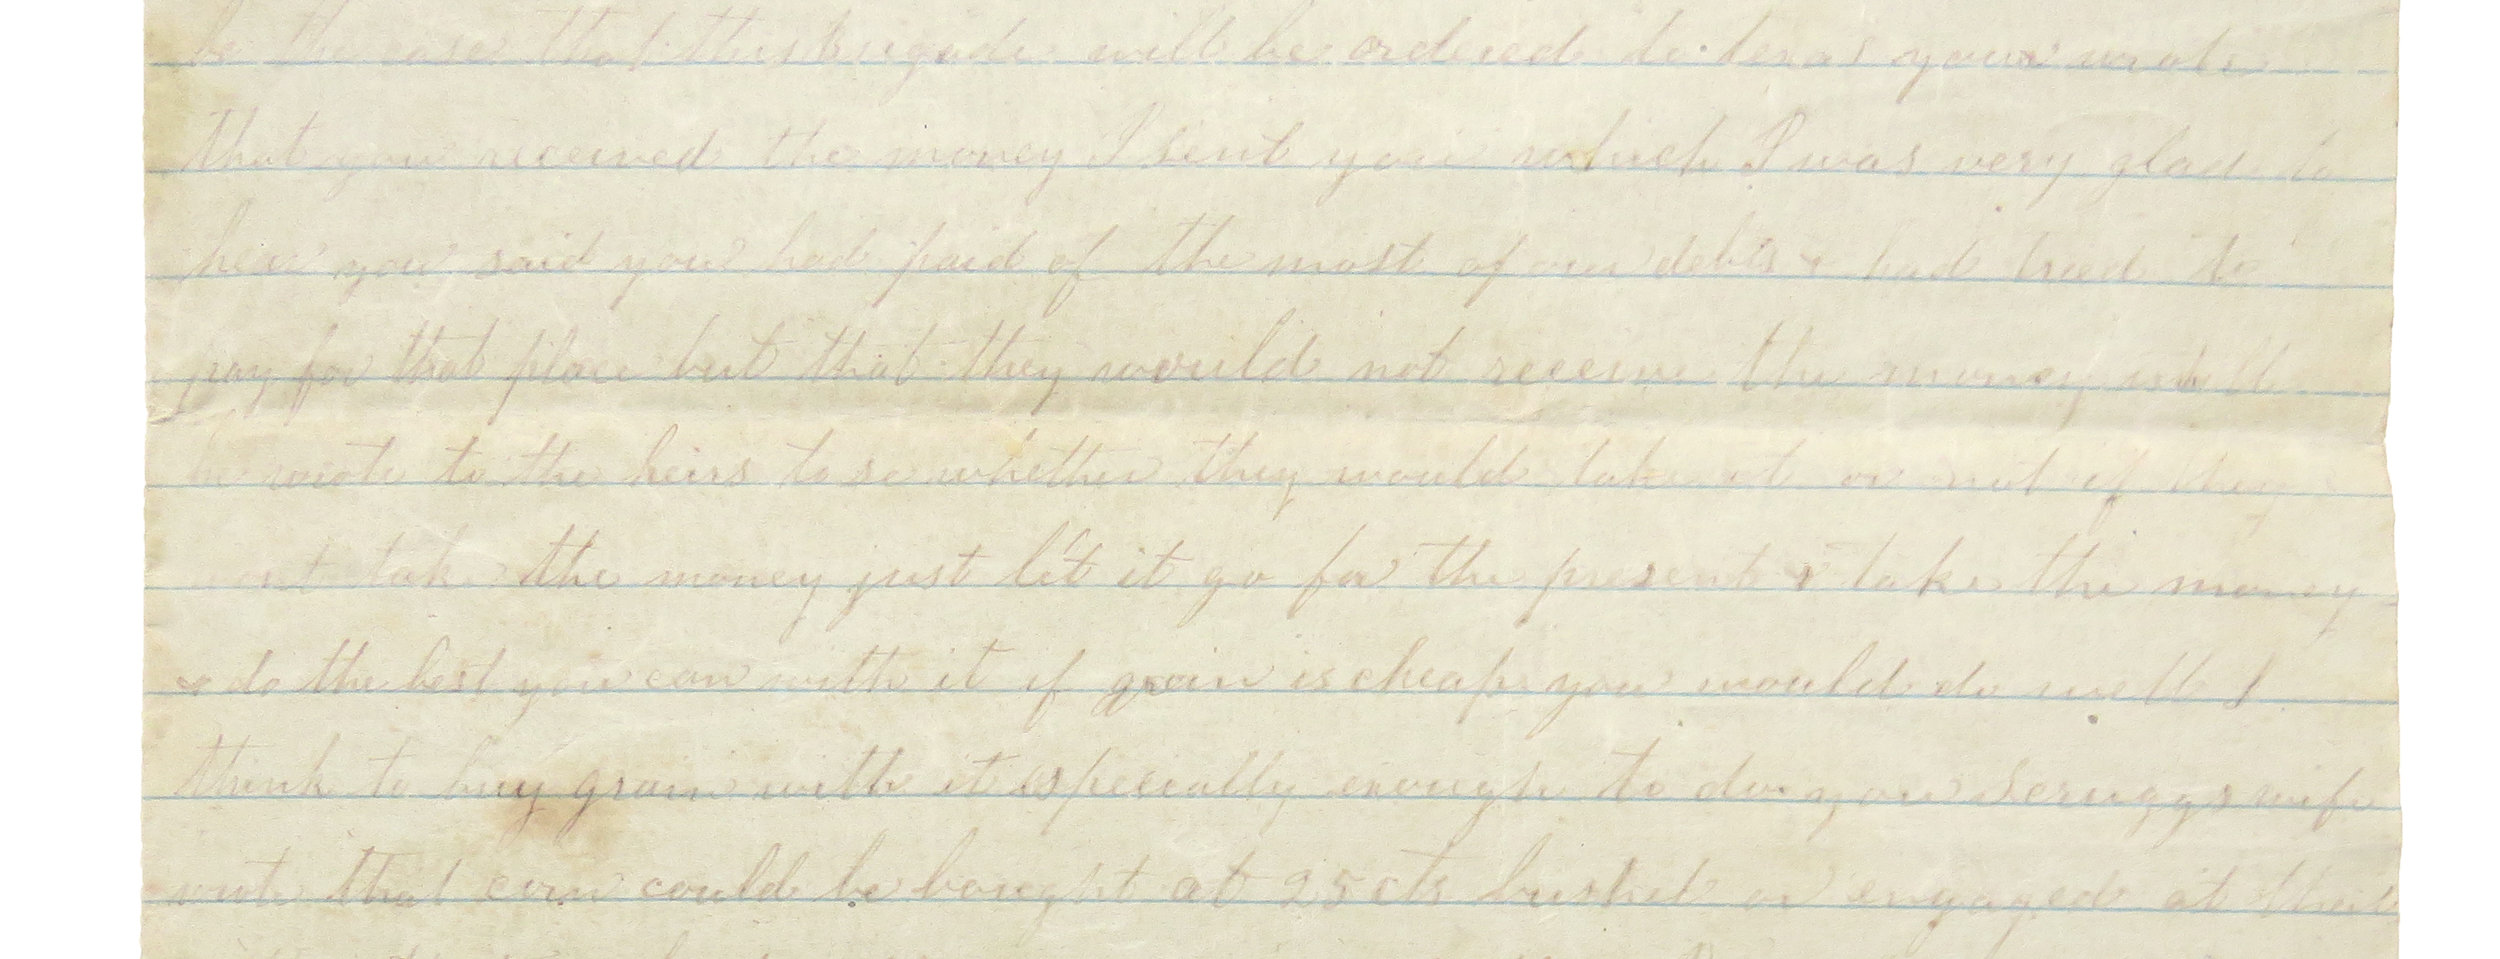 be the case that this Brigade will be ordered to texas you wrote
that you received the money I sent you which I was very glad to
hear you said you had paid of the most of our debts & had tried to
pay for that place but that they would not receive the money until
he wrote to the heirs to se whether they would take it or not if they
wont take the money just let it go for the present & take the money
& do the best you can with it if grain is cheap you would do well I
think to buy grain with it especially enough to do you Scruggs wife
wrote that corn could be bought at 25 cts bushel or engaged at that